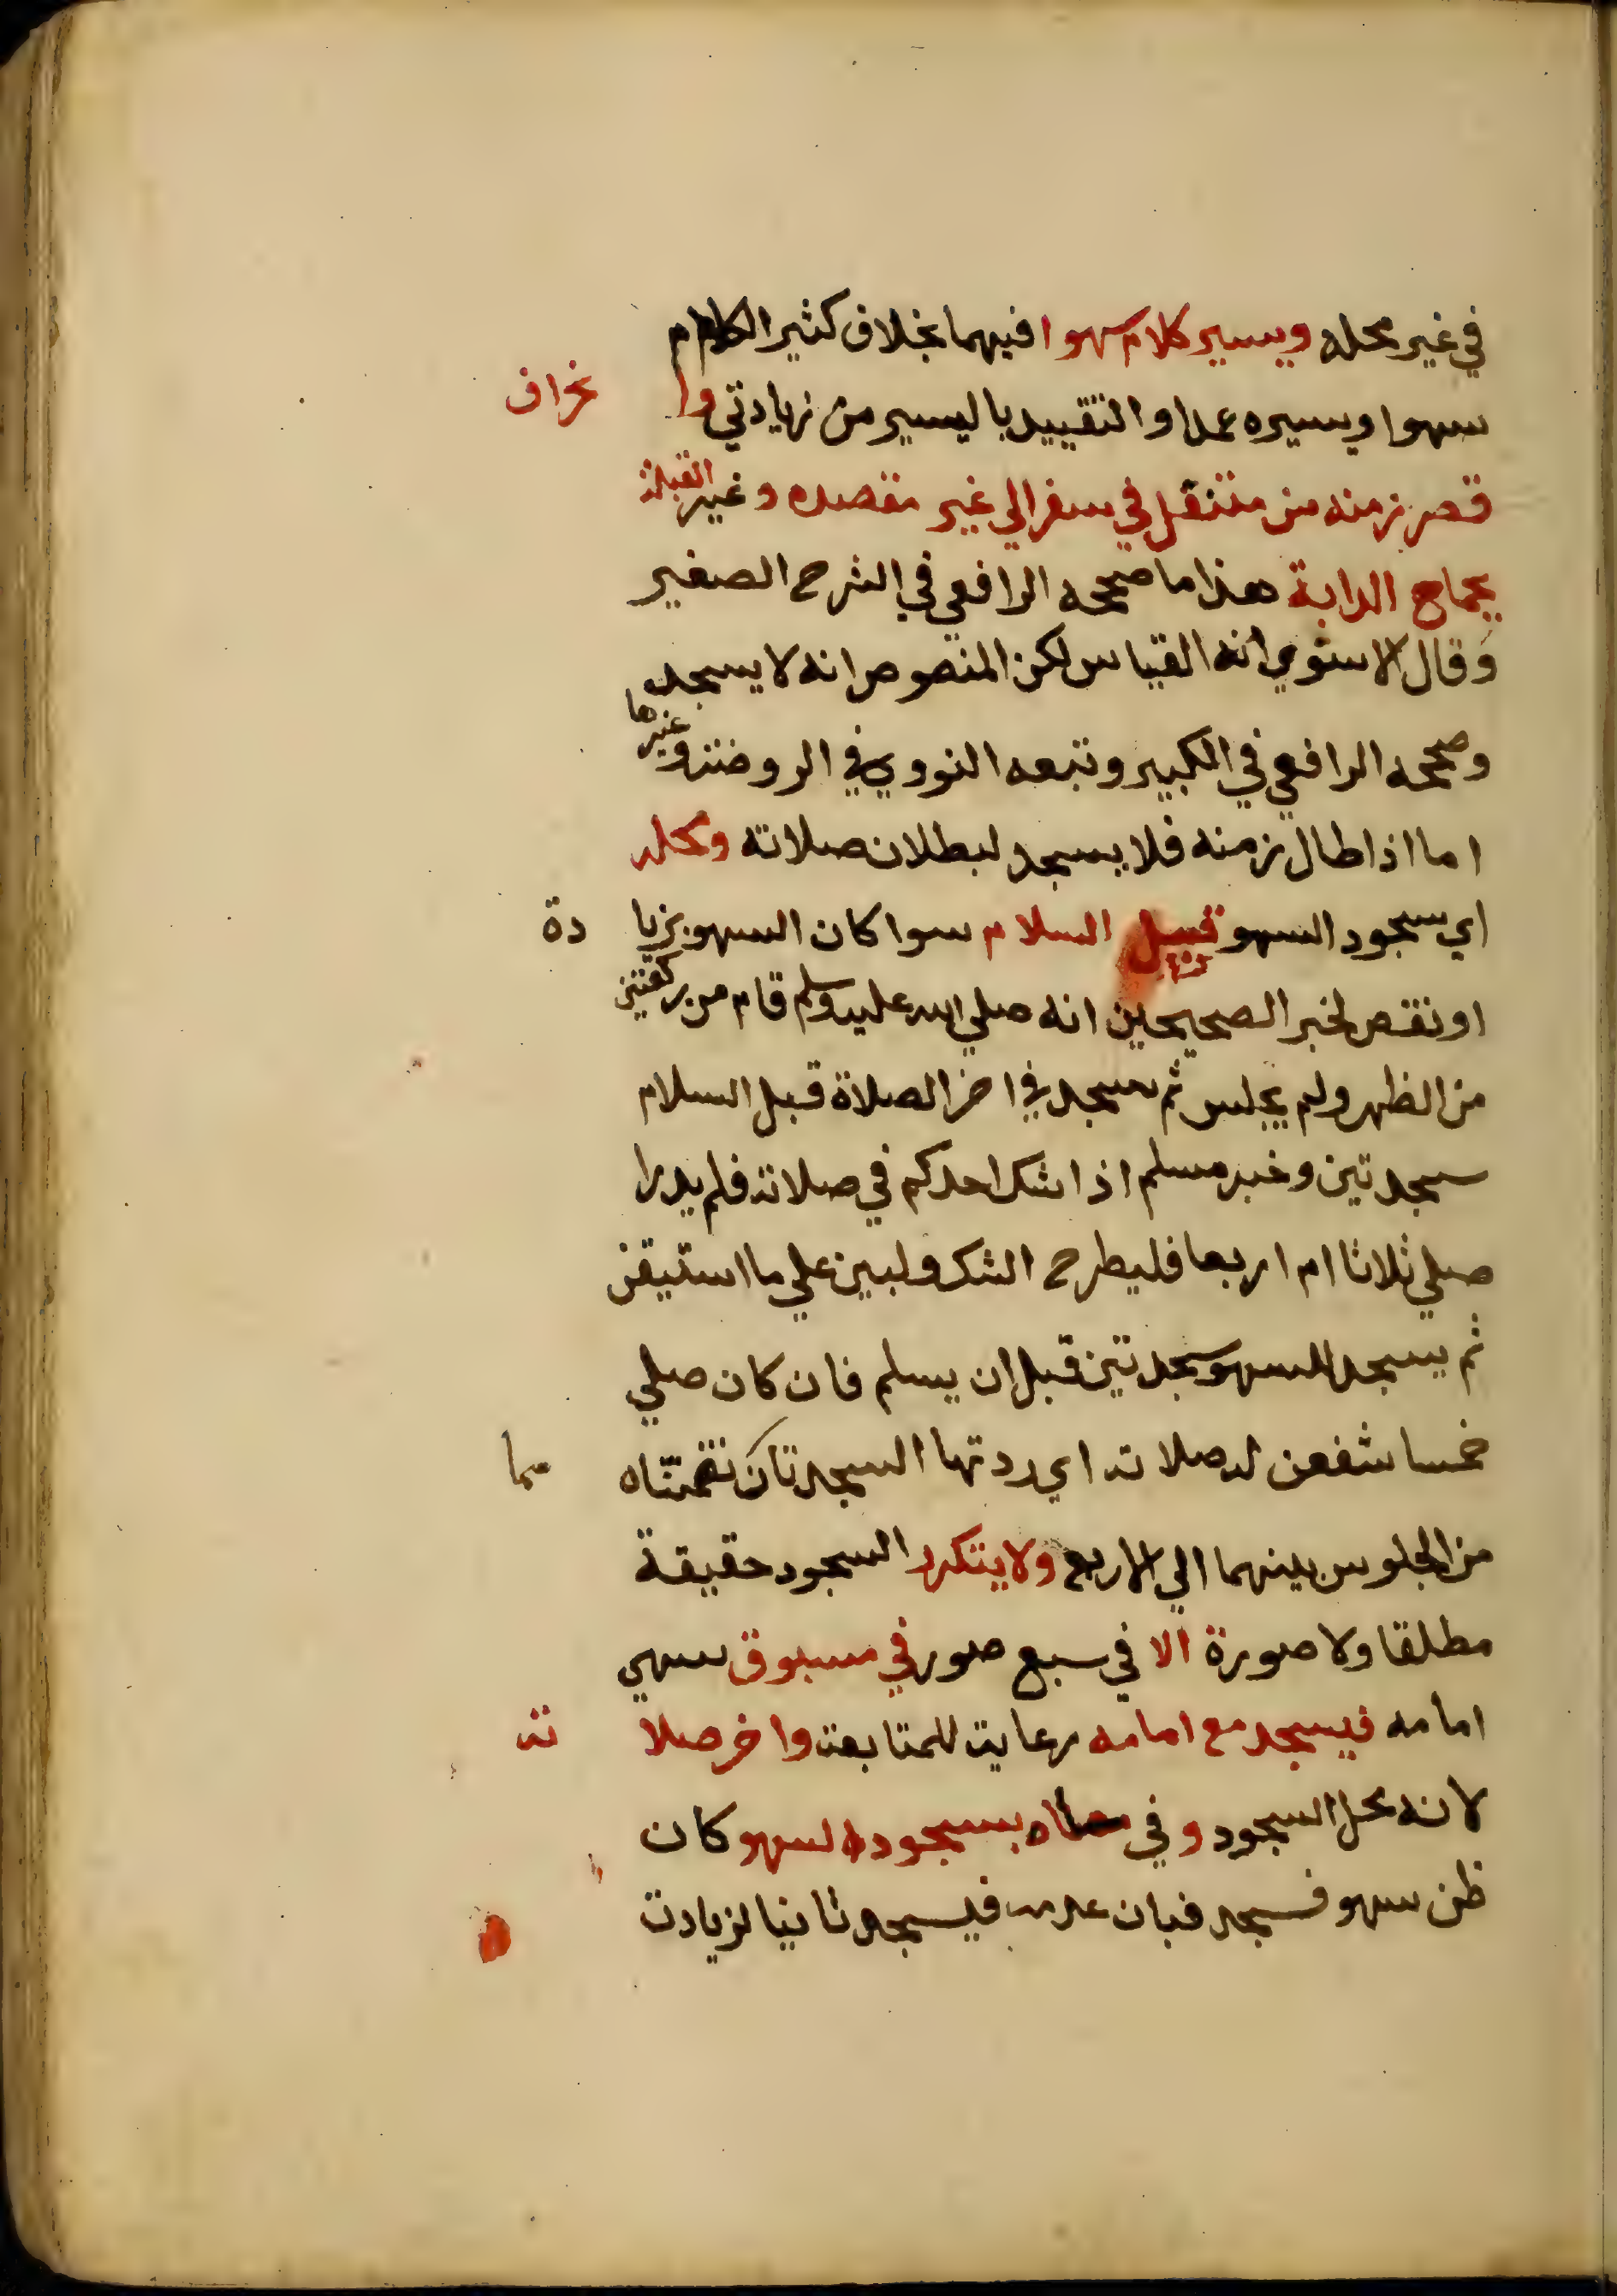 في غير محله ويسير كلام سهوا فيهما بخلاف كثير الكلام
سهوا ويسيره عمدا والتقييد باليسير من زيادتي وا نحراف
قصر زمنه من متنفل في سفر الي غير مقصده وغير القبلة
بجماح الدابة هذا ما صححه الرافعي في الشرح الصغير
وقال الاسنوي انه القياس لكن المنصوص انه لا يسجد
وصححه الرافعي في الكبير وتبعه النووي في الروضة وغيرها
اما اذا طال زمنه فلا يسجد لبطلان صلاته ومحله
اي سجود السهو قبيل السلام سوا كان السهو بزيا دة
او نقص لخبر الصحيحين انه صلي الله عليه وسلم قام من ركعتين
من الظهر ولم يجلس ثم سجد في اخر الصلاة قبل السلام
سجدتين وخبر مسلم اذا شك احدكم في صلاته فلم يدر ا
صلي ثلاثا ام اربعا فليطرح الشك وليبن علي ما استيقن
ثم يسجد للسهو سجدتين قبل ان يسلم فان كان صلي
خمسا شفعن له صلاته اي ردتها السجدتان تضمنتاه مما
من الجلوس بينهما الي الاربع ولا يتكرر السجود حقيقة
مطلقا ولا صورة الا في سبع صور في مسبوق سهي
امامه فيسجد مع امامه رعاية للمتابعة واخر صلا ته
لانه محل السجود وفي بسجوده لسهو كان
ظن سهو فسجد فبان عدمه فيسجد ثانيا لزيادة